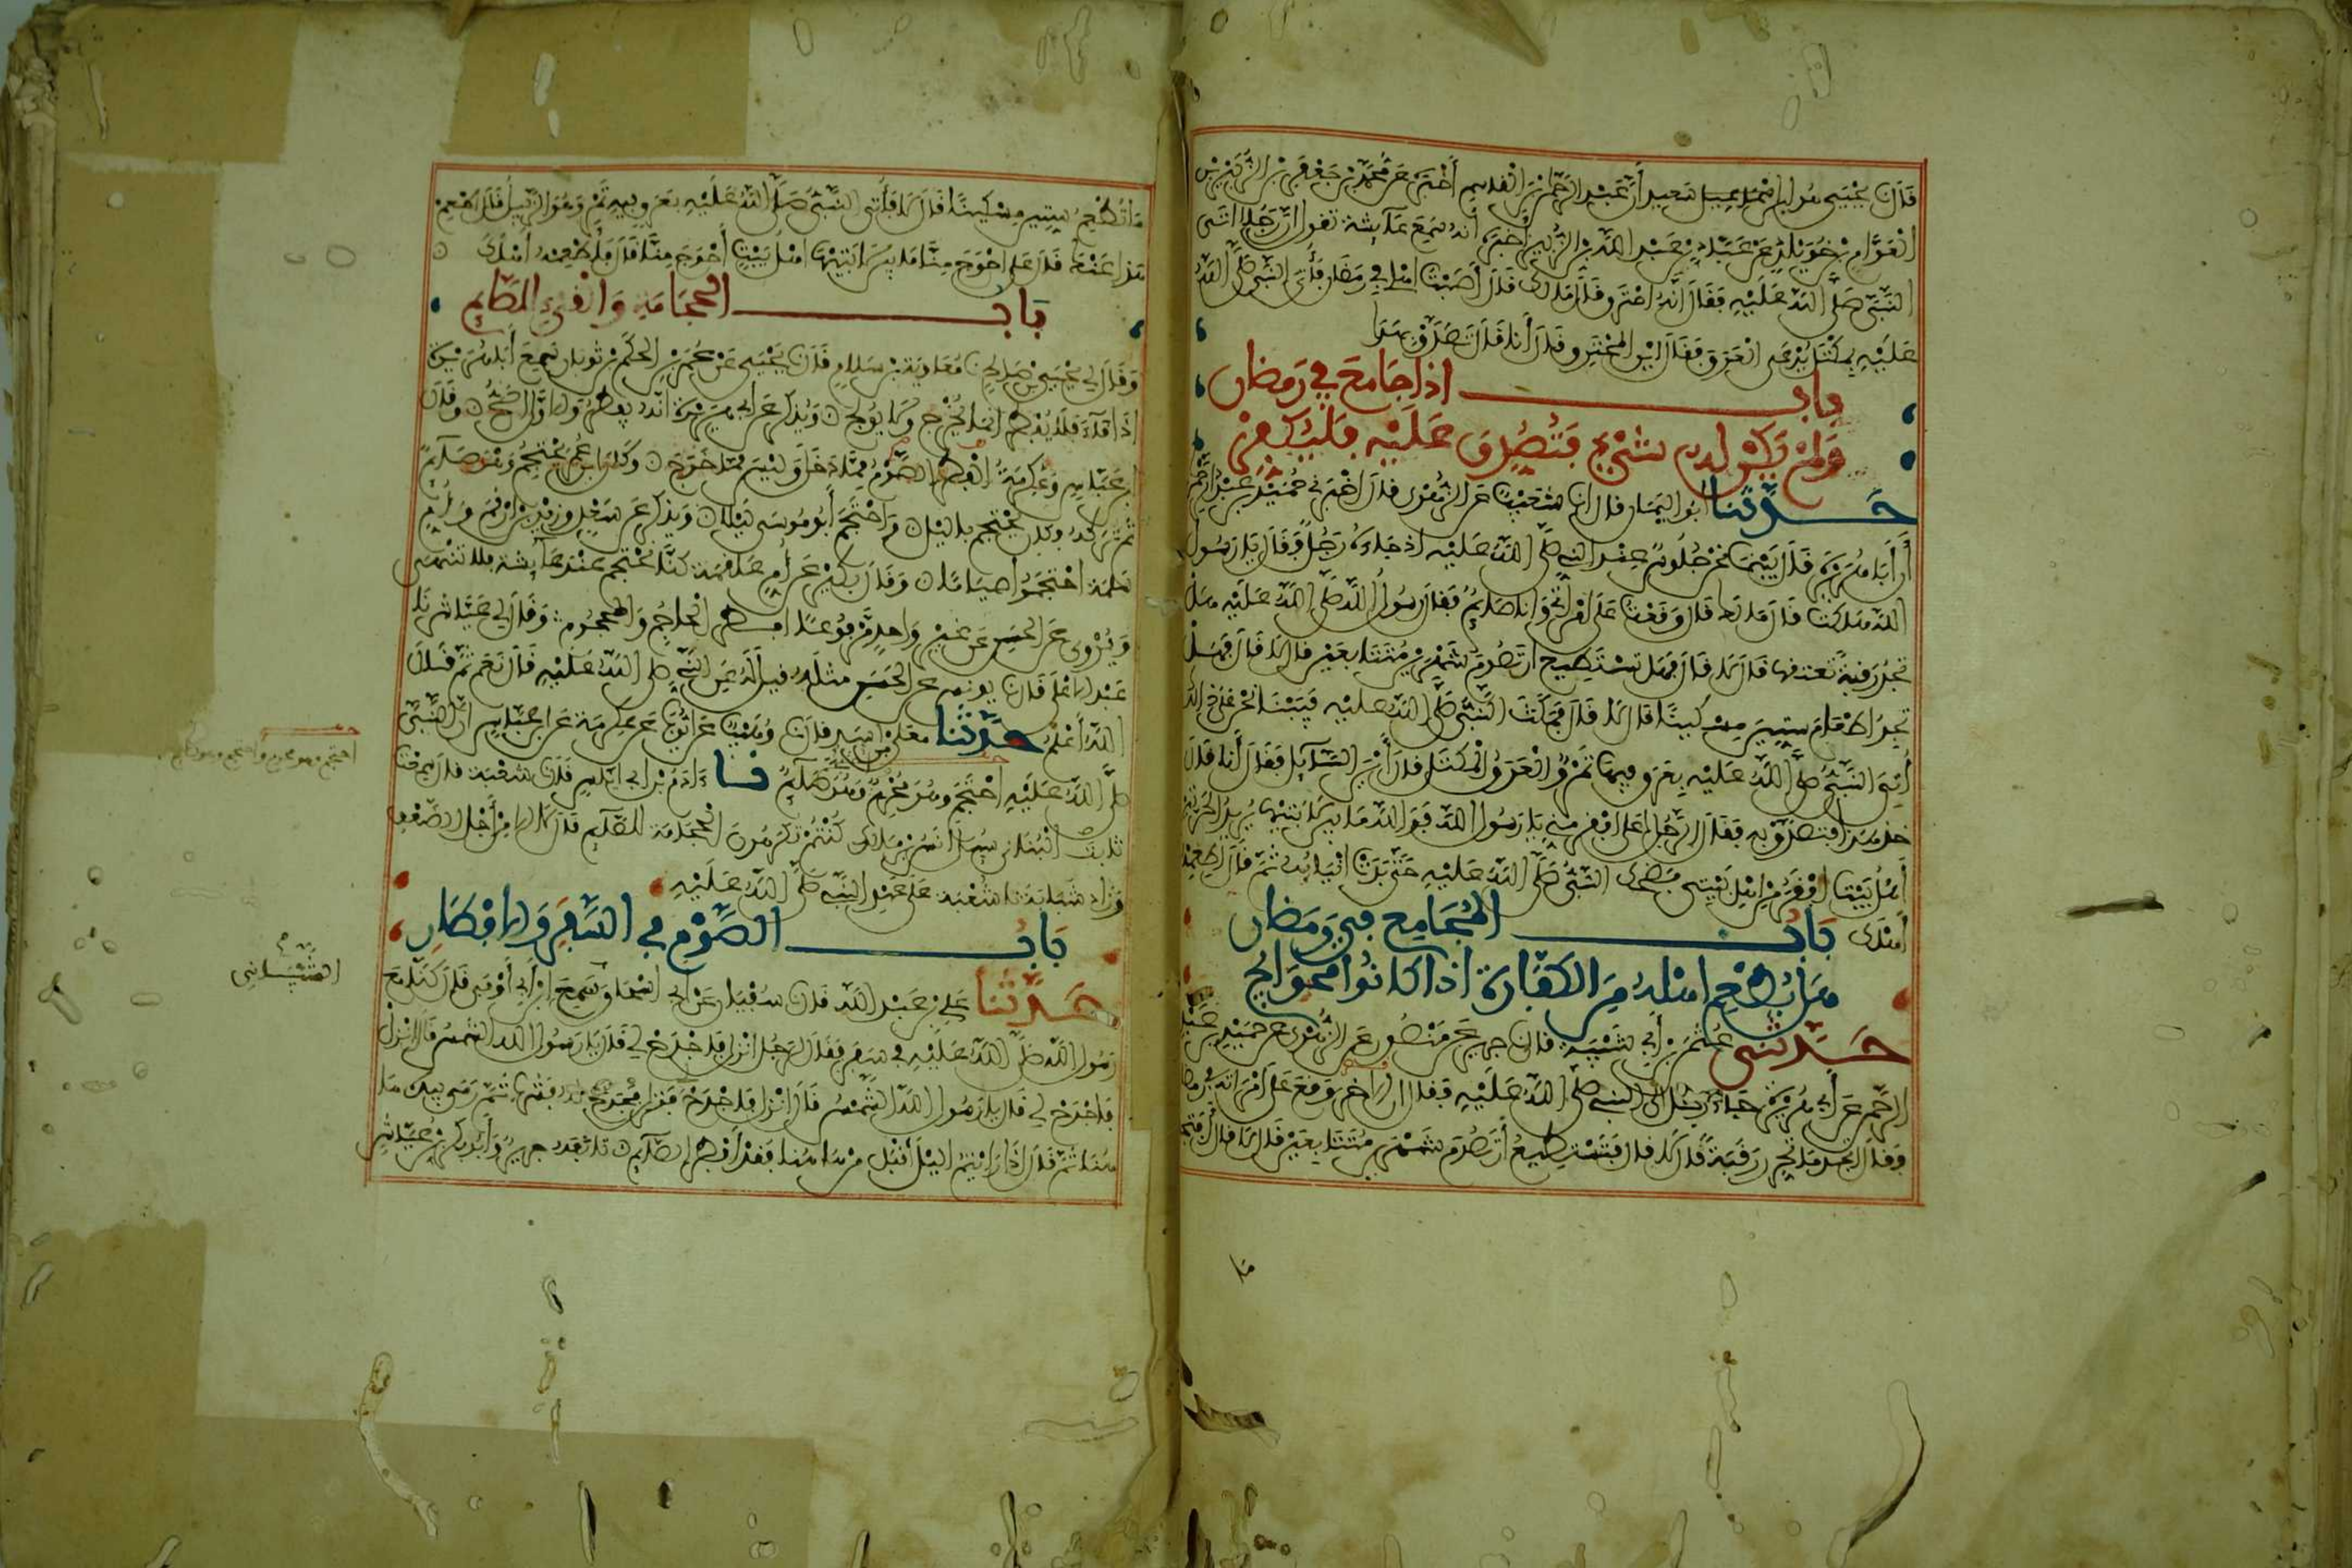 قال نا يحيى هو ابن سعيد أن عبد الرحمن بن القاسم أخبره عن محمد بن جعفر بن الزبير بن
العوام بن خويلد عن عباد بن عبد الله بن الزبير أخبره أنه سمع عائشة تقول إن رجلا أتى
النبي صلى الله عليه فقال إنه احترق قال مالك قال أصبت أهلي في رمضان فأتي النبي صلى الله
عليه بمكتل يدعى العرق فقال أين المحترق قال أنا قال تصدق بهذا
باب إذا جامع في رمضان
ولم يكن له شيء فتصدق عليه فليكفر
حدثنا أبو اليمان قال انا شعيب عن الزهري قال أخبرني حميد بن عبد الرحمن
أن أبا هريرة قال بينما نحن جلوس عند النبي صلى الله عليه إذ جاءه رجل فقال يا رسول
الله هلكت قال مالك قال وقعت على امرأتي وأنا صائم فقال رسول الله صلى الله عليه هل
تجد رقبة تعتقها قال لا قال فهل تستطيع أن تصوم شهرين متتابعين قال لا قال فهل
تجد إطعام ستين مسكينا قال لا قال فمكث النبي صلى الله عليه فبينا نحن على ذلك
أتي النبي صلى الله عليه بعرق فيها تمر والعرق المكتل قال أين السائل فقال أنا قال
خذ هذا فتصدق به فقال الرجل أعلى أفقر مني يا رسول الله فوالله ما بين لابتيها يريد الحرتين
أهل بيت أفقر من أهل بيتي فضحك النبي صلى الله عليه حتى بدت أنيابه ثم قال أطعمه
أهلك باب المجامع في رمضان
هل يطعم أهله من الكفارة إذا كانوا محاويج
حدثني عثمن بن أبي شيبة قال نا جرير عن منصور عن الزهري عن حميد بن عبد
الرحمن عن أبي هريرة جاء رجل إلى النبي صلى الله عليه فقال إن الأخر وقع على امرأته في رمضان
فقال أتجد ما تحرر رقبة قال لا قال فتستطيع أن تصوم شهرين متتابعين قال لا قال أفتجد
ما
ما تطعم ستين مسكينا قال لا قال فأتي النبي صلى الله عليه بعرق فيه تمر وهو الزبيل قال أطعم
هذا عنك قال على أحوج منا ما بين لابتيها أهل بيت أحوج منا قال فأطعمه أهلك
باب الحجامة والقيء للصائم
وقال لي يحيى بن صالح نا معاوية بن سلام قال نا يحيى عن عمر بن الحكم بن ثوبان سمع أبا هريرة
إذا قاء فلا يفطر إنما يخرج ولا يولج ويذكر عن أبي هريرة أنه يفطر والأول أصح وقال
ابن عباس وعكرمة الفطر الصوم مما دخل وليس مما خرج وكان ابن عمر يحتجم وهو صائم
ثم تركه وكان يحتجم بالليل واحتجم أبو موسى ليلا ويذكر عن سعد وزيد بن أرقم وأم
سلمة احتجموا صياما وقال بكير عن أم علقمة كنا نحتجم عند عائشة فلا تنهى
ويروى عن الحسن عن غير واحد مرفوعا أفطر الحاجم والمحجوم وقال لي عياش نا
عبد الأعلى قال نا يونس عن الحسن مثله قيل له عن النبي صلى الله عليه قال نعم ثم قال
الله أعلم حدثنا معلى بن أسد قال نا وهيب عن أيوب عن عكرمة عن ابن عباس أن النبي
صلى الله عليه احتجم وهو محرم وهو صائم نا ءادم بن أبي إياس قال نا شعبة قال سمعت
ثابت البناني سئل أنس بن مالك كنتم تكرهون الحجامة للصائم قال لا إلا من أجل الضعف
وزاد شبابة نا شعبة على عهد النبي صلى الله عليه
باب الصوم في السفر والإفطار
حدثنا علي بن عبد الله قال نا سفيان عن أبي إسحاق سمع ابن أبي أوفى قال كنا مع
رسول الله صلى الله عليه في سفر فقال لرجل انزل فاجدح لي قال يا رسول الله الشمس قال انزل
فاجدح لي قال يا رسول الله الشمس قال انزل فاجدح فنزل فجدح له فشرب ثم رمى بيده ها
هنا ثم قال إذا رأيتم الليل أقبل من ها هنا فقد أفطر الصائم تابعه جرير وأبو بكر بن عياش
احتجم وهو محرم واحتجم وهو صائم
الشيباني